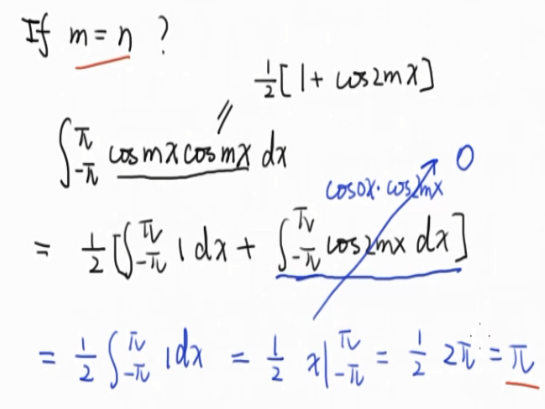 If m = n ?
1/2 [ 1 + cos2mx ]
∫_{-π}^{π} cosmx cosmx dx
0
cos0x · cos2mx
= 1/2 [ ∫_{-π}^{π} 1 dx + ∫_{-π}^{π} cos2mx dx ]
= 1/2 ∫_{-π}^{π} 1 dx = 1/2 x |_{-π}^{π} = 1/2 2π = π